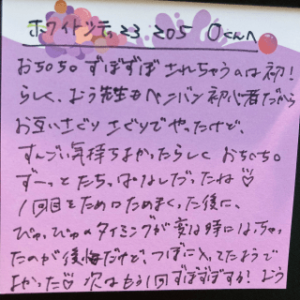 ホワイトシティ23 205 Oくんへ
おちち。ずぼずぼ されちゃうのは初!
らしく、おう先生もペンバン初心者だから
お互いさぐりさぐりでやったけど、
すんごい気持ちよかったらしくおちち。
ずーっとたちっぱなしだったね♡
1回目をためにためまくった後に、
ぴゅぴゅのタイミングが変な時にはっちゃっ
たのが後悔だけど、つぼに入ってたようで
よかった♡ 次はもう1回ずぼずぼする! おう